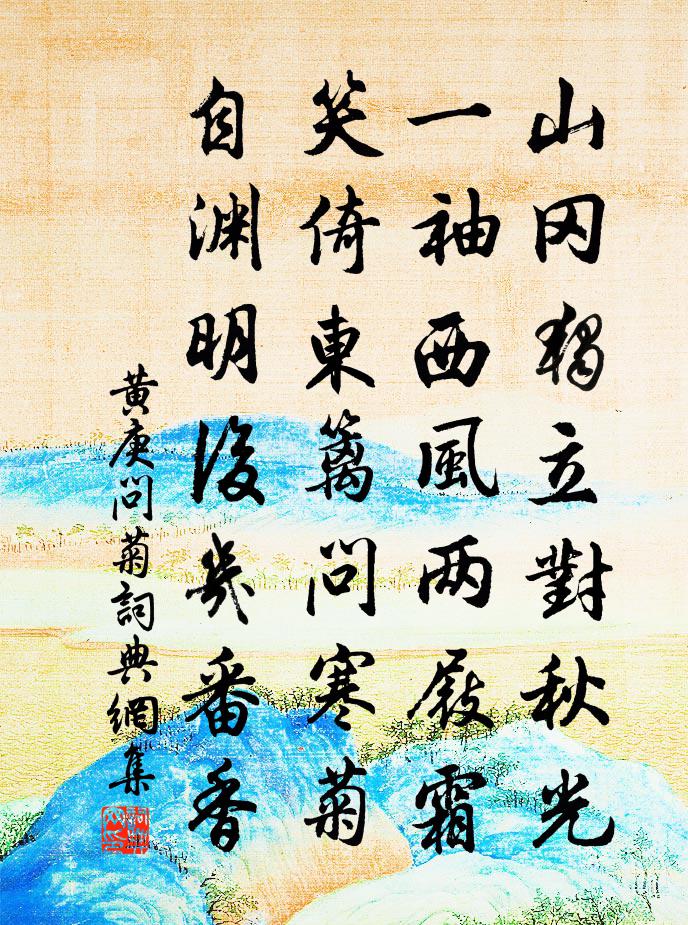 山冈獨立對秋光
一袖西風两屐霜
笑倚東籬問寒菊
自渊明後幾番香
黄庚問菊詞典網集